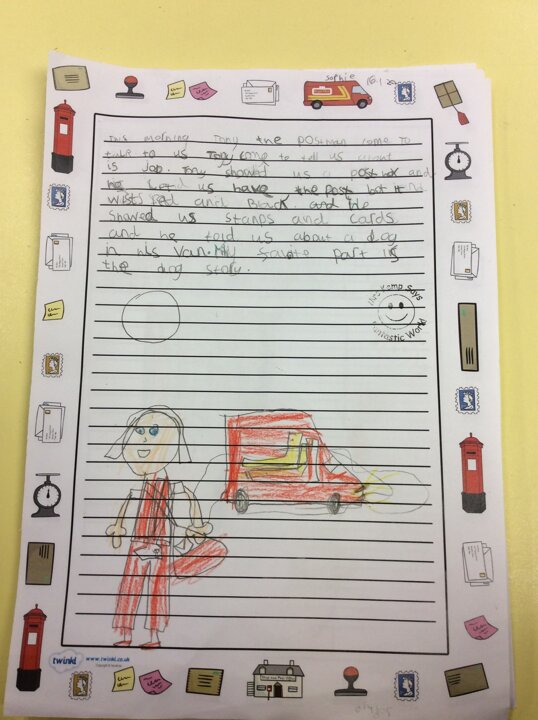 Sophie 16.1.20
This morning Tony the Postman come to
talk to us Tony come to tell us about
is Job. Tony showd us a post and
he Let us have the post hat it
was red and Black and He
Showed us Stanps and Cards
and he told us about a dog
in his van. My favoite part is
the dog story.
Mrs Kemp Says
Fantastic Work
twinkl www.twinkl.co.uk